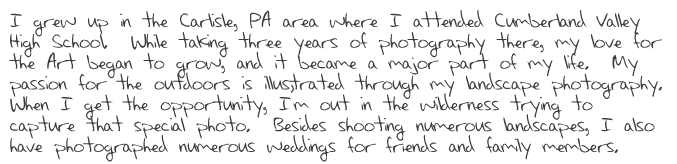 I grew up in the Carlisle, PA area where I attended Cumberland Valley
High School. While taking three years of photography there, my love for
the Art began to grow, and it became a major part of my life. My
passion for the outdoors is illustrated through my landscape photography.
When I get the opportunity, I'm out in the wilderness trying to
capture that special photo. Besides shooting numerous landscapes, I also
have photographed numerous weddings for friends and family members.